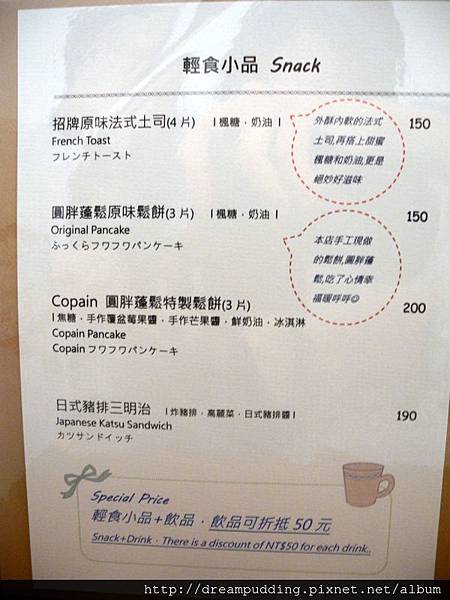 輕食小品 Snack
招牌原味法式土司(4 片) |楓糖．奶油 | 150
French Toast
フレンチトースト
外酥內軟的法式
土司,再搭上甜蜜
楓糖和奶油,更是
絕妙好滋味
圓胖蓬鬆原味鬆餅(3 片) |楓糖．奶油 | 150
Original Pancake
ふっくらフワフワパンケーキ
本店手工現做
的鬆餅,圓胖蓬
鬆,吃了心情幸
福暖呼呼☺
Copain 圓胖蓬鬆特製鬆餅(3 片) 200
|焦糖．手作覆盆莓果醬．手作芒果醬．鮮奶油．冰淇淋
Copain Pancake
Copain フワフワパンケーキ
日式豬排三明治 |炸豬排．高麗菜．日式豬排醬| 190
Japanese Katsu Sandwich
カツサンドイッチ
Special Price
輕食小品+飲品．飲品可折抵 50 元
Snack+Drink．There is a discount of NT$50 for each drink..
http://dreampudding.pixnet.net/album